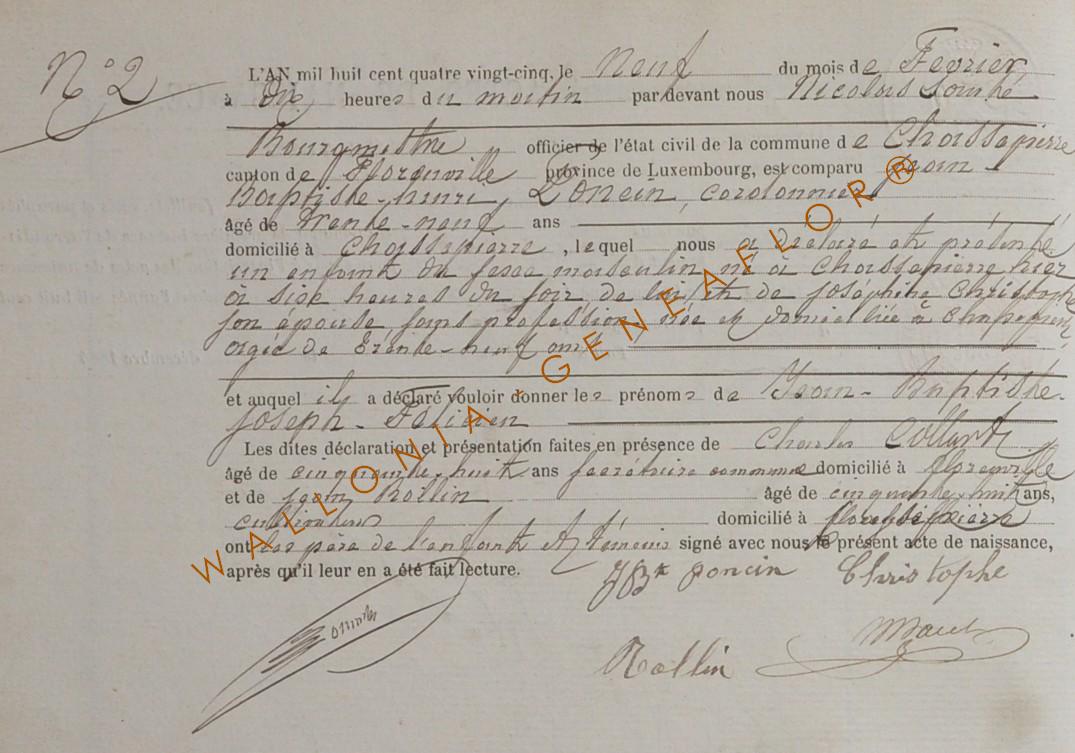 N° 2
L'AN mil huit cent quatre vingt-cinq, le neuf du mois de Février
à dix heures du matin par devant nous Nicolas
Bourgmestre officier de l'état civil de la commune de Chassepierre
canton de Florenville province de Luxembourg, est comparu Jean
Baptiste-henri, Poncin, cordonnier
âgé de trente-neuf ans
domicilié à Chassepierre, lequel nous a déclaré et présenté
un enfant du sexe masculin né à Chassepierre hier
à six heures du soir de lui et de Joséphine Christophe
son épouse sans profession née et domiciliée à Chassepierre
agée de trente-neuf ans
et auquel il a déclaré vouloir donner les prénoms de Jean-Baptiste-
Joseph-Félicien
Les dites déclaration et présentation faites en présence de Charles
âgé de cinquante-huit ans secrétaire communal domicilié à florenville
et de Jean Rollin âgé de cinquante-huit ans,
cultivateur domicilié à
ont les père de l'enfant et témoins signé avec nous le présent acte de naissance,
après qu'il leur en a été fait lecture. JBte Poncin Christophe
Rollin
WALLONIA - GENEAFLOR®